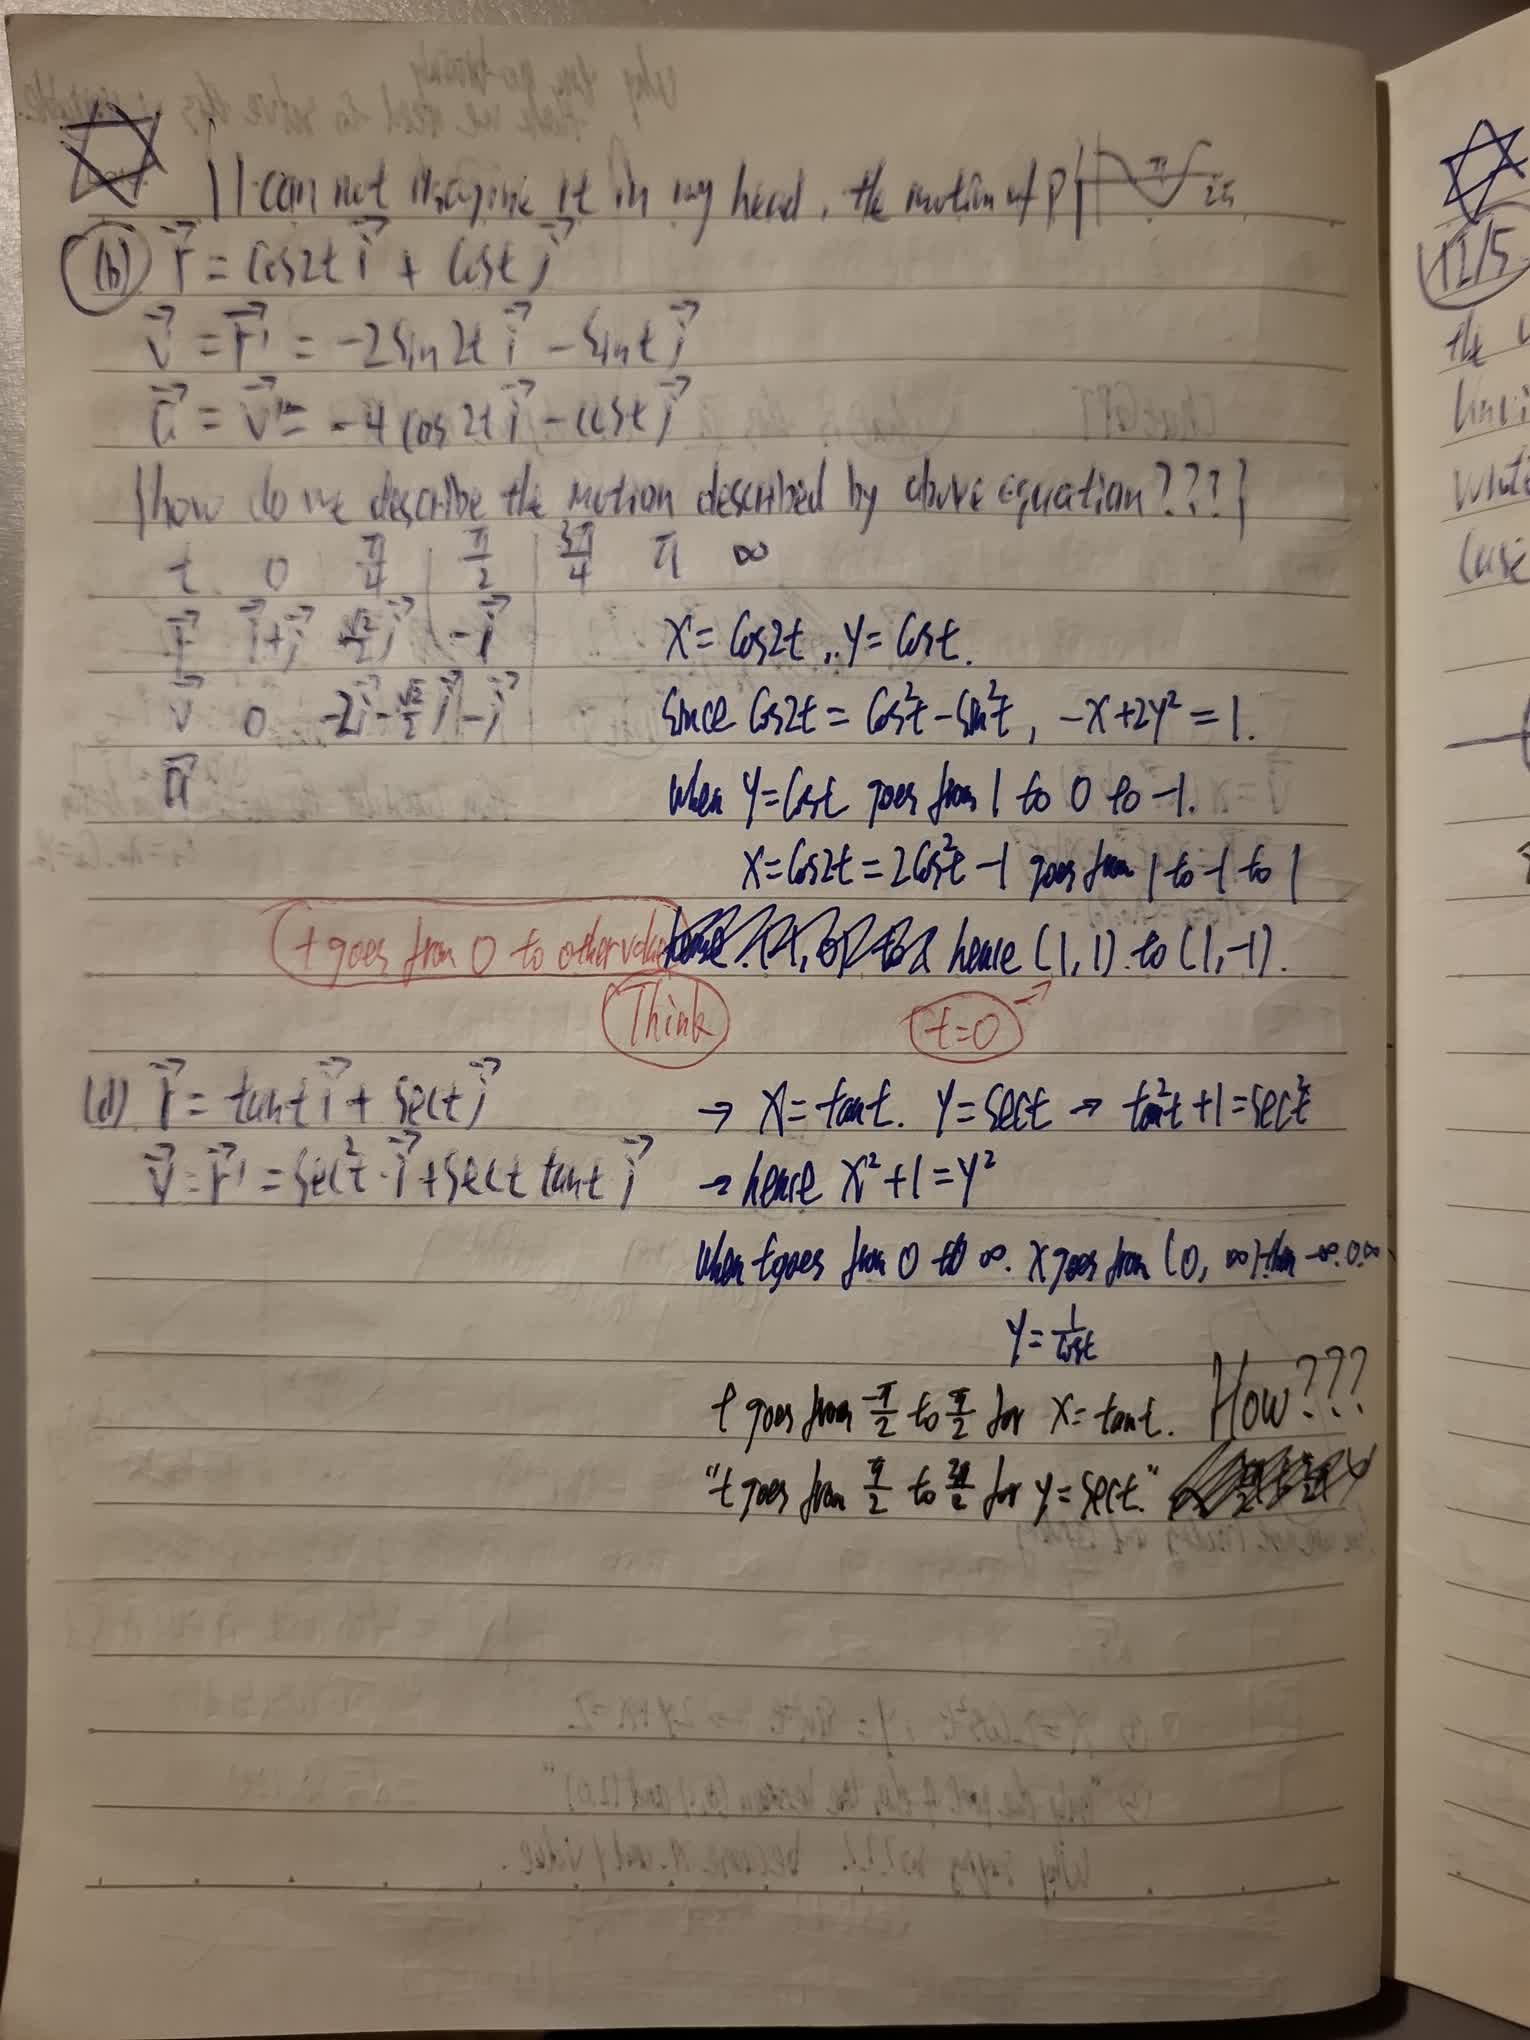 I can not imagine it in my head, the motion of P π 2π
(b) r⃗ = cos2t i⃗ + cost j⃗
v⃗ = r⃗' = -2sin2t i⃗ - sint j⃗
a⃗ = v⃗' = -4cos2t i⃗ - cost j⃗
how do we describe the motion described by above equation???
t 0 π/4 π/2 3π/4 π ∞
r⃗ i⃗+j⃗ √2/2 j⃗ -i⃗
X = cos2t, y = cost.
v⃗ 0 -2i⃗-√2/2 j⃗ -j⃗
since cos2t = cos²t - sin²t, -x+2y² = 1.
a⃗
when y=cost goes from 1 to 0 to -1.
x=cos2t=2cos²t-1 goes from 1 to -1 to 1
t goes from 0 to other value
hence (1,1) to (1,-1).
Think
t=0
(d) r⃗ = tant i⃗ + sect j⃗
→ x=tant. y=sect → tan²t+1=sec²t
v⃗ = r⃗' = sec²t·i⃗ + sect tant j⃗
→ hence x²+1=y²
when t goes from 0 to ∞. x goes from (0, ∞) then -∞.0.∞
y=1/cost
t goes from -π/2 to π/2 for x=tant. How???
"t goes from π/2 to 3π/2 for y=sect."
12/5
the